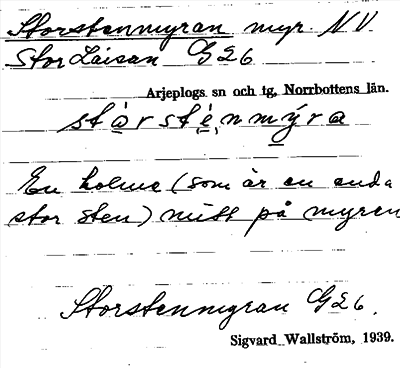 Storstenmyran myr. NV
Stor Laisan G26
Arjeplogs sn och tg, Norrbottens län.
stòrsténmýra
En holme (som är en enda
stor sten) mitt på myren
Storstenmyran G26.
Sigvard Wallström, 1939.